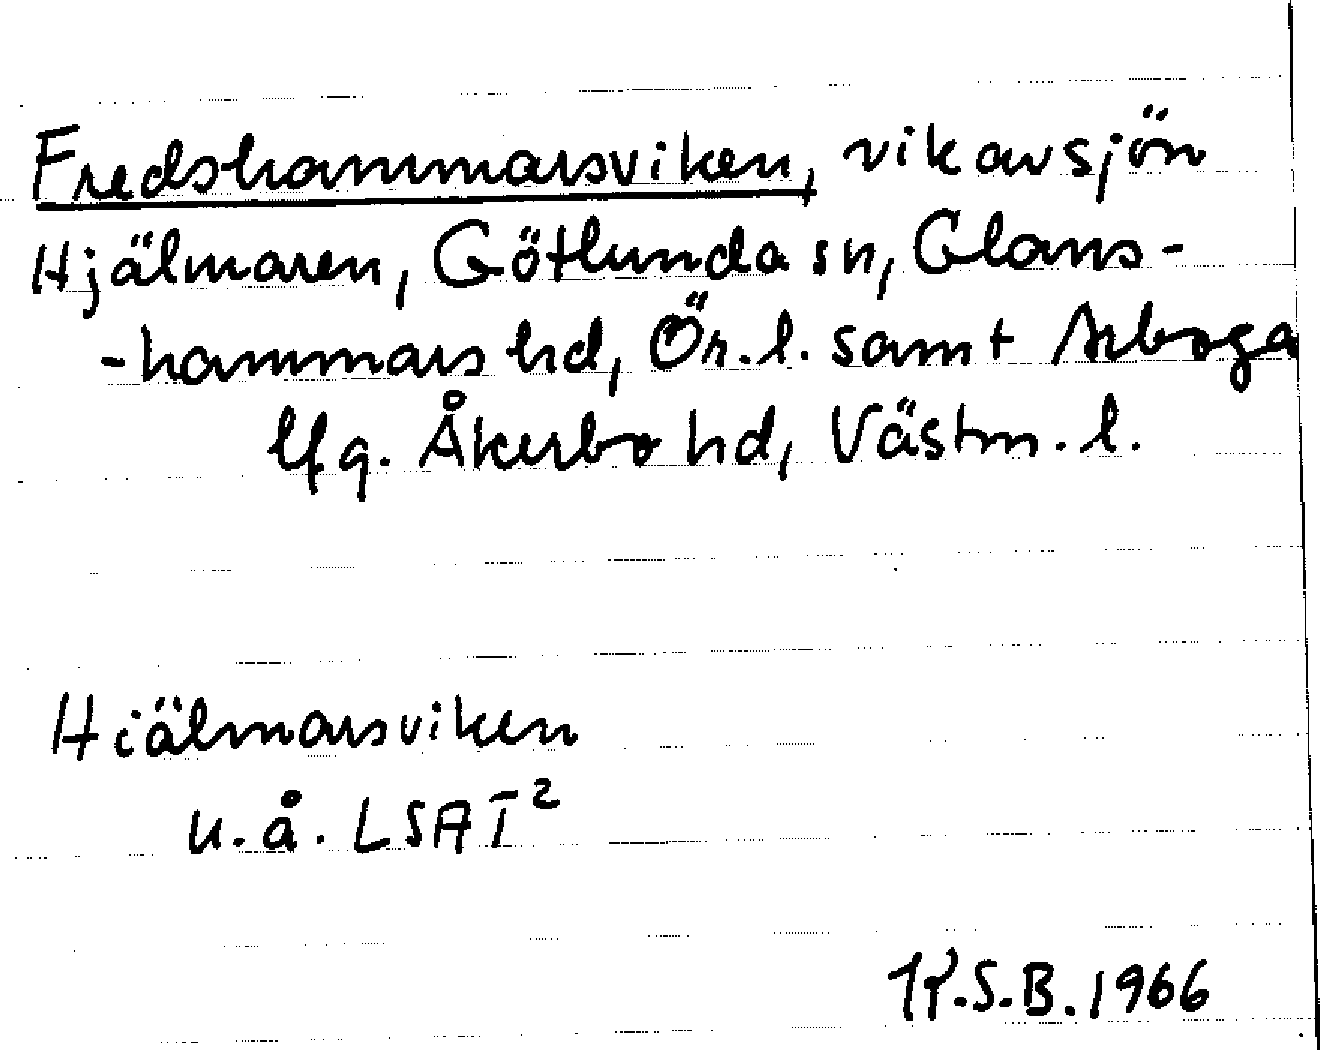 Fredshammarsviken, vik av sjön
Hjälmaren, Götlunda sn, Glans-
-hammars hd, Ör. l. samt Arboga
lfg. Åkerbo hd, Västm. l.
Hiälmarsviken
u. å. LSA I²
K.S.B. 1966